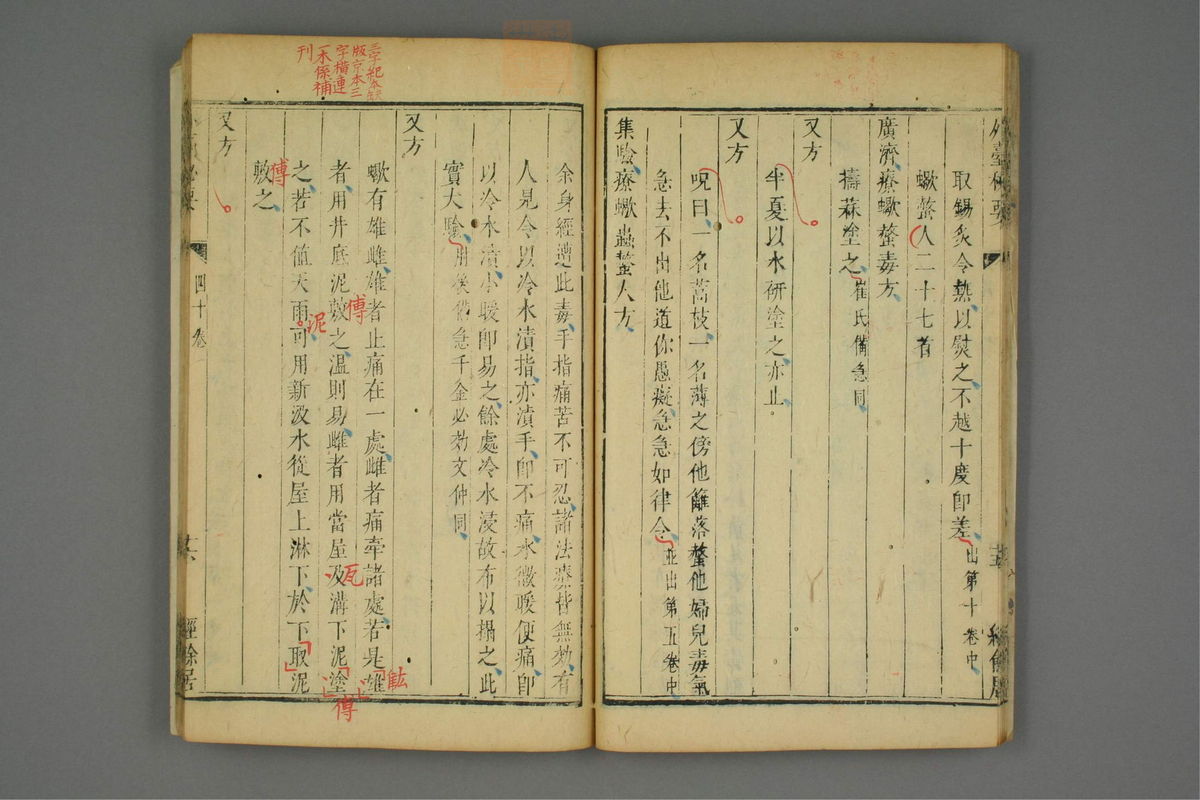 外臺秘要
取錫炙令熱以熨之不越十度卽差出第十卷中
蠍螫人二十七首
廣濟療蠍螫毒方
擣蒜塗之崔氏備急同
又方
半夏以水硏塗之亦止
又方
呪曰一名蒿枝一名薄之傍他籬落螫他婦兒毒氣
急去不出他道你愚癡急急如律令並出第五卷中
集驗療蠍蟲螫人方
經餘居
余身經遭此毒手指痛苦不可忍諸法療皆無効有
人見令以冷水漬指亦漬手卽不痛水微暖便痛卽
以冷水漬小暖卽易之餘處冷水浸故布以搨之此
實大驗用後備急千金必効文仲同
又方
蠍有雄雌雄者止痛在一處雌者痛牽諸處若是雄
者用井底泥敷之温則易雌者用當屋及溝下泥塗
之若不值天雨可用新汲水從屋上淋下於下取泥
敷之
又方
四十卷
經餘居
版京本三
字橫連
一本係補
刊
傅
傅
泥
瓦
傅